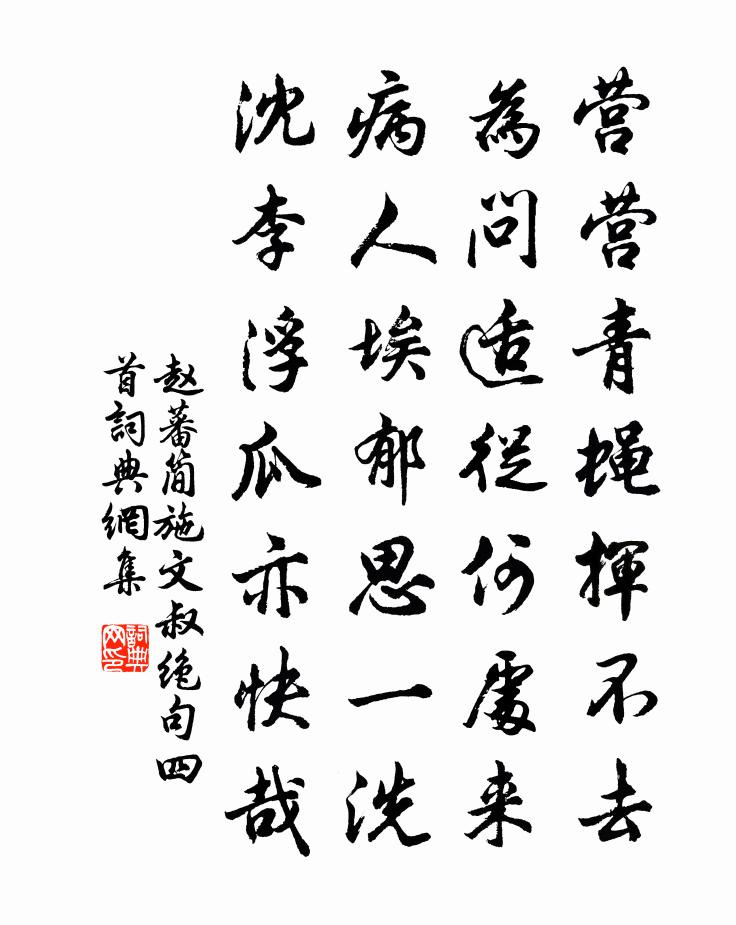 营营青蝇揮不去
為問适從何處来
病人埃郁思一洗
沈李浮瓜亦快哉
赵蕃简施文叔绝句四
首詞典網集
詞典网印